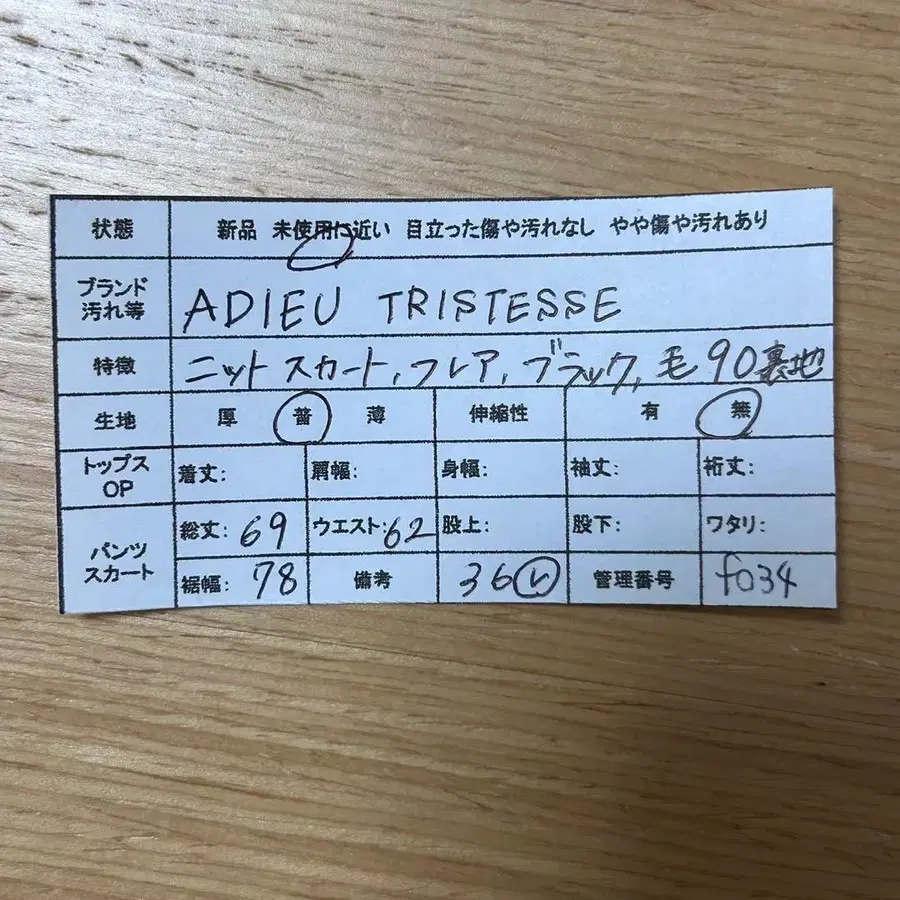 状態 新品 未使用に近い 目立った傷や汚れなし やや傷や汚れあり
ブランド
汚れ等 ADIEU TRISTESSE
特徴 ニットスカート, フレア, ブラック, 毛90裏地
生地 厚 普 薄 伸縮性 有 無
トップス
OP 着丈: 肩幅: 身幅: 袖丈: 裄丈:
パンツ
スカート 総丈: 69 ウエスト: 62 股上: 股下: ワタリ:
裾幅: 78 備考 36 管理番号 f034